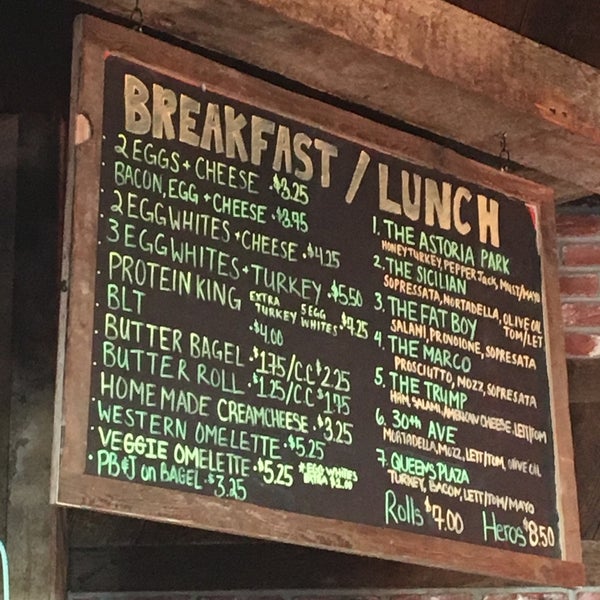 BREAKFAST / LUNCH
· 2 EGGS + CHEESE · $3.25
· BACON, EGG + CHEESE · $3.95
· 2 EGG WHITES + CHEESE · $4.25
· 3 EGG WHITES + TURKEY · $5.50
· PROTEIN KING EXTRA TURKEY 5 EGG WHITES · $7.25
· BLT · $4.00
· BUTTER BAGEL · $1.75/C.C $2.25
· BUTTER ROLL · $1.25/C.C $1.75
· HOMEMADE CREAMCHEESE · $3.25
· WESTERN OMELETTE · $5.25
· VEGGIE OMELETTE · $5.25 * EGG WHITES EXTRA $1.00
· PB&J on BAGEL · $3.25
1. THE ASTORIA PARK
HONEYTURKEY, PEPPER JACK, MUST/MAYO
2. THE SICILIAN
SOPRESSATA, MORTADELLA, OLIVE OIL
TOM/LET
3. THE FAT BOY
SALAMI, PROVOLONE, SOPRESATA
4. THE MARCO
PROSCIUTTO, MOZZ, SOPRESATA
5. THE TRUMP
HAM, SALAMI, AMERICAN CHEESE, LETT/TOM
6. 30th AVE
MORTADELLA, MOZZ, LETT/TOM, OLIVE OIL
7. QUEENS PLAZA
TURKEY, BACON, LETT/TOM/MAYO
Rolls $7.00 Heros $8.50